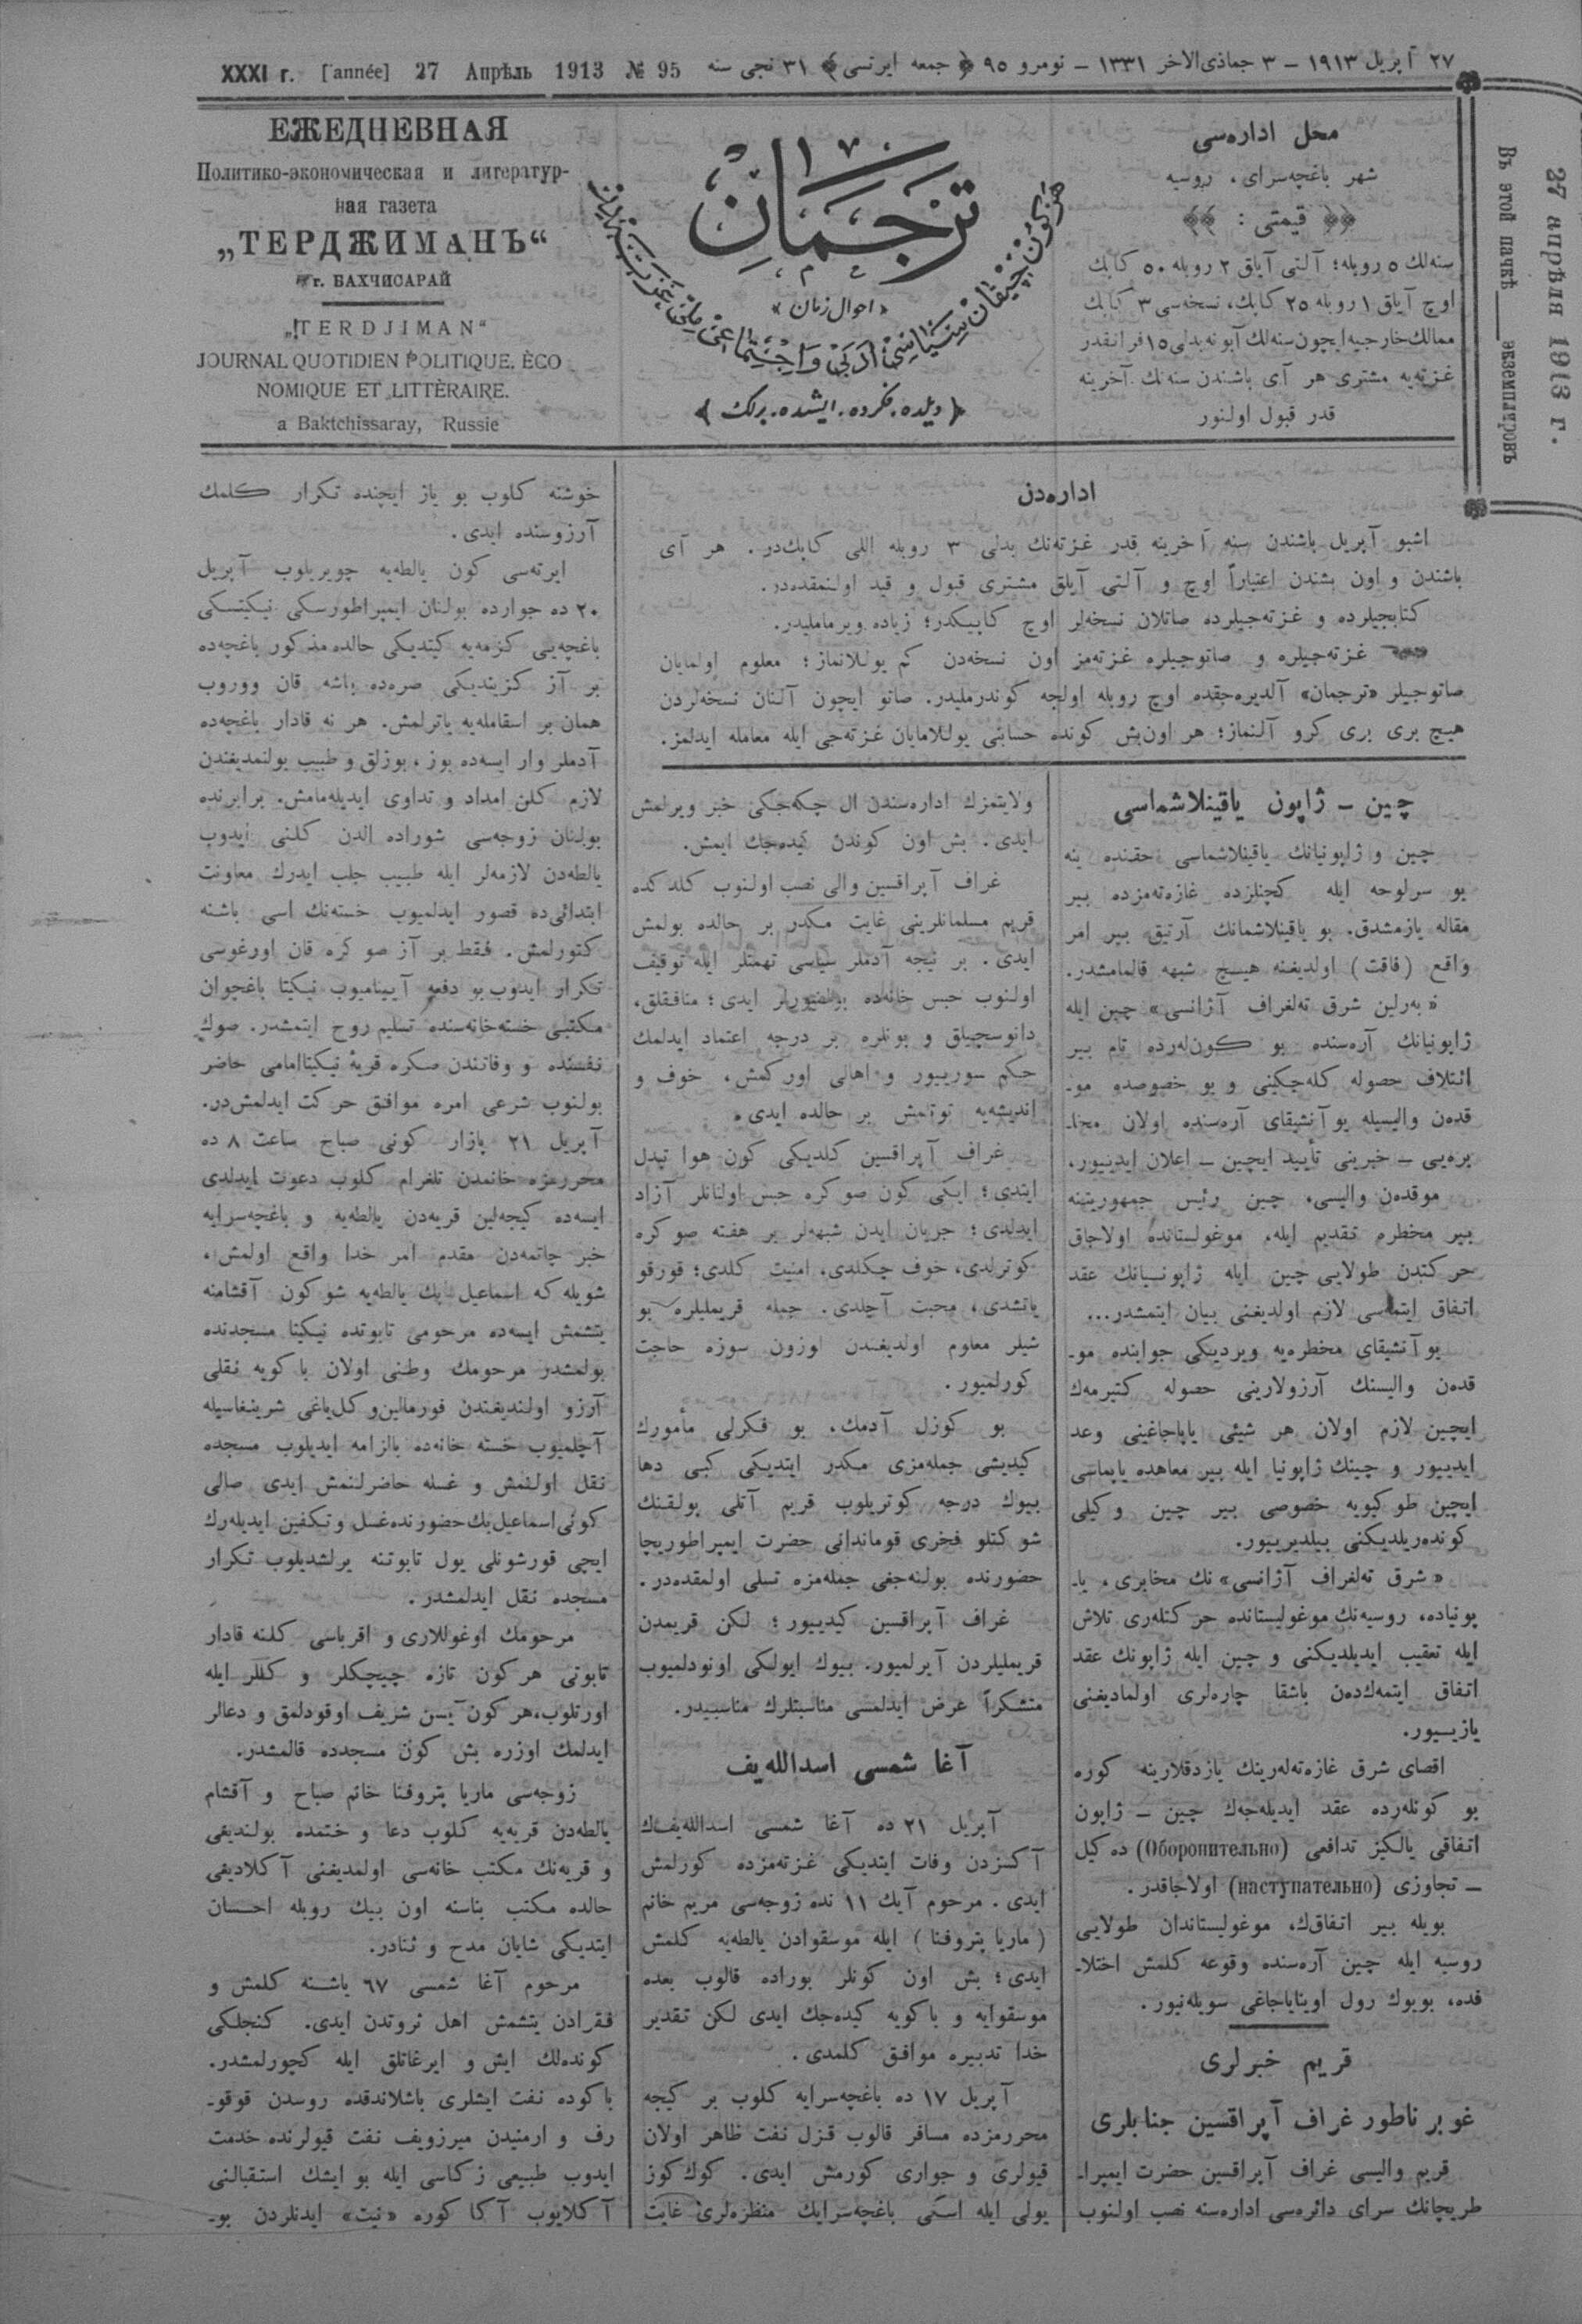 XXXI г. [année] 27 Апрѣль 1913 № 95
٢٧ آپریل ١٩١٣ – ٣ جماذی‌الاخر ١٣٣١ – نومرو ٩٥ ﴿ جمعه ایرتسی ﴾ ٣١ نجی سنه
ЕЖЕДНЕВНАЯ
Политико-экономическая и литератур-
ная газета
„ТЕРДЖИМАНЪ“
г. БАХЧИСАРАЙ
„TERDJIMAN“
JOURNAL QUOTIDIEN POLITIQUE, ÈCO
NOMIQUE ET LITTÈRAIRE.
a Baktchissaray, Russie
ترجمان
« احوال زمان »
﴿ دیلده، فکرده، ایشده، برلك ﴾
محل اداره‌سی
شهر باغچه‌سرای، روسیه
قیمتی :
سنه‌لك ٥ روبله؛ آلتی آیلق ٢ روبله ٥٠ کاپك
اوچ آیلق ١ روبله ٢٥ کاپك، نسخه‌سی ٣ کاپك
ممالك خارجیه ایچون سنه‌لك آبونه بدلی ١٥ فرانقدر
غزته‌یه مشتری هر آی باشندن سنه‌نك آخرینه
قدر قبول اولنور
Въ этой пачкѣ ____ экземпляровъ
27 апрѣля 1913 г.
اداره‌دن
اشبو آپریل باشندن سنه آخرینه قدر غزته‌نك بدلی ٣ روبله اللی کاپك‌در. هر آی
باشندن و اون بشندن اعتباراً اوچ و آلتی آیلق مشتری قبول و قید اولنمقده‌در.
کتابجیلرده و غزته‌جیلرده صاتلان نسخه‌لر اوچ کاپیکدر؛ زیاده ویرماملیدر.
غزته‌جیلره و صاتوجیلره غزته‌مز اون نسخه‌دن کم یوللانماز؛ معلوم اولمایان
صاتوجیلر «ترجمان» آلدیره‌جقده اوچ روبله اولجه کوندرملیدر. صاتو ایچون آلنان نسخه‌لردن
هیچ بری بری کرو آلنماز؛ هر اون‌بش کونده حسابی یوللامایان غزته‌جی ایله معامله ایدلمز.
چین – ژاپون یاقینلاشماسی
چین و ژاپونیانك یاقینلاشماسی حقنده ینه
بو سرلوحه ایله کچنلرده غازه‌ته‌مزده بیر
مقاله یازمشدق. بو یاقینلاشمانك آرتیق بیر امر
واقع (فاقت) اولدیغنه هیچ شبهه قالمامشدر.
« به‌رلین شرق ته‌لغراف آژانسی» چین ایله
ژاپونیانك آره‌سنده بو کون‌له‌رده تام بیر
ائتلاف حصوله کله‌جکینی و بو خصوصده مو-
قده‌ن والیسیله یوآنشیقای آره‌سنده اولان مخا-
بره‌یی – خبرینی تأیید ایچین – اعلان ایدییور.
موقده‌ن والیسی، چین رئیس جمهوریتینه
بیر مخطره تقدیم ایله، موغولستانده اولاجاق
حرکتدن طولایی چین ایله ژاپونیانك عقد
اتفاق ایتماسی لازم اولدیغنی بیان ایتمشدر...
یوآنشیقای مخطره‌یه ویردیکی جوابنده مو-
قده‌ن والیسنك آرزولارینی حصوله کتیرمه‌ك
ایچین لازم اولان هر شیئی یاپاجاغینی وعد
ایدییور و چینك ژاپونیا ایله بیر معاهده یاپماسی
ایچین طوکیویه خصوصی بیر چین وکیلی
کونده‌ریلدیکنی بیلدیرییور.
« شرق ته‌لغراف آژانسی» نك مخابری، یا-
پونیاده، روسیه‌نك موغولیستانده حرکتله‌ری تلاش
ایله تعقیب ایدیلدیکنی و چین ایله ژاپونك عقد
اتفاق ایتمه‌كده‌ن باشقا چاره‌لری اولمادیغنی
یازییور.
اقصای شرق غازه‌ته‌له‌رینك یازدقلارینه کوره
بو کونله‌رده عقد ایدیله‌جه‌ك چین – ژاپون
اتفاقی یالکیز تدافعی (Оборонительно) ده‌کیل
– تجاوزی (наступательно) اولاجاقدر.
بویله بیر اتفاق‌ك، موغولیستاندان طولایی
روسیه ایله چین آره‌سنده وقوعه کلمش اختلا-
فده، بویوك رول اوینایاجاغی سویله‌نیور.
قریم خبرلری
غوبرناطور غراف آپراقسین جنابلری
قریم والیسی غراف آپراقسین حضرت ایمپرا-
طریچانك سرای دائره‌سی اداره‌سنه نصب اولنوب
ولایتمزك اداره‌سندن ال چکه‌جکی خبر ویرلمش
ایدی. بش اون کوندن کیده‌جك ایمش.
غراف آپراقسین والی نصب اولنوب کلدکده
قریم مسلمانلرینی غایت مکدر بر حالده بولمش
ایدی. بر نیجه آدملر سیاسی تهمتلر ایله توقیف
اولنوب حبس خانه‌ده بولنیورلر ایدی؛ منافقلق،
دانوسچیلق و بونلره بر درجه اعتماد ایدلمك
حکم سوریور و اهالی اورکمش، خوف و
اندیشه‌یه توتلمش بر حالده ایدی.
غراف آپراقسین کلدیکی کون هوا تبدل
ایتدی؛ ایکی کون صوکره حبس اولنانلر آزاد
ایدلدی؛ جریان ایدن شبهه‌لر بر هفته صوکره
کوترلدی، خوف چکلدی، امنیت کلدی؛ قورقو
یاتشدی، محبت آچلدی. جمله قریملیلره بو
شیلر معلوم اولدیغندن اوزون سوزه حاجت
کورلمیور.
بو کوزل آدمك، بو فکرلی مأمورك
کیدیشی جمله‌مزی مکدر ایتدیکی کبی دها
بیوك درجه کوتریلوب قریم آتلی پولقنك
شوکتلو فخری قوماندانی حضرت ایمپراطوریچا
حضورنده بولنه‌جغی جمله‌مزه تسلی اولمقده‌در.
غراف آپراقسین کیدییور؛ لکن قریمدن
قریملیلردن آیرلمیور. بیوك ایولکی اونودلمیوب
متشکراً عرض ایدلمسی مناسبتلرك مناسبیدر.
آغا شمسی اسدالله‌یف
آپریل ٢١ ده آغا شمسی اسدالله‌یفك
آکسزدن وفات ایتدیکی غزته‌مزده کورلمش
ایدی. مرحوم آیك ١١ نده زوجه‌سی مریم خانم
(ماریا پتروفنا) ایله موسقوادن یالطه‌یه کلمش
ایدی؛ بش اون کونلر بوراده قالوب بعده
موسقوایه و باکویه کیده‌جك ایدی لکن تقدیر
خدا تدبیره موافق کلمدی.
آپریل ١٧ ده باغچه‌سرایه کلوب بر کیجه
محررمزده مسافر قالوب قزل نفت ظاهر اولان
قیولری و جواری کورمش ایدی. کوك‌کوز
یولی ایله اسکی باغچه‌سرایك منظره‌لری غایت
خوشنه کلوب بو یاز ایچنده تکرار کلمك
آرزوسنده ایدی.
ایرته‌سی کون یالطه‌یه چویریلوب آپریل
٢٠ ده جوارده بولنان ایمپراطورسکی نیکیتسکی
باغچه‌یی کزمه‌یه کیتدیکی حالده مذکور باغچه‌ده
بر آز کزیندیکی صره‌ده باشه قان ووروب
همان بر اسقامله‌یه یاترلمش. هر نه قادار باغچه‌ده
آدملر وار ایسه‌ده بوز، بوزلق و طبیب بولنمدیغندن
لازم کلن امداد و تداوی ایدیله‌مامش. برابرنده
بولنان زوجه‌سی شوراده الدن کلنی ایدوب
یالطه‌دن لازمه‌لر ایله طبیب جلب ایدرك معاونت
ابتدائی‌ده قصور ایدلمیوب خسته‌نك اسی باشنه
کتورلمش. فقط بر آز صوکره قان اورغوسی
تکرار ایدوب بو دفعه آیینامیوب نیکیتا باغچوان
مکتبی خسته‌خانه‌سنده تسلیم روح ایتمشدر. صوك
نفسنده و وفاتندن صکره قریۀ نیکیتا امامی حاضر
بولنوب شرعی امره موافق حرکت ایدلمش‌در.
آپریل ٢١ یازار کونی صباح ساعت ٨ ده
محررمزه خانمدن تلغرام کلوب دعوت ایدلدی
ایسه‌ده کیجه‌لین قریه‌دن یالطه‌یه و باغچه‌سرایه
خبر چاتمه‌دن مقدم امر خدا واقع اولمش،
شویله که اسماعیل بك یالطه‌یه شو کون آقشامنه
یتشمش ایسه‌ده مرحومی تابوتده نیکیتا مسجدنده
بولمشدر مرحومك وطنی اولان باکویه نقلی
آرزو اولندیغندن فورمالین و کل‌یاغی شرینغاسیله
آچلمیوب خسته خانه‌ده بالزامه ایدیلوب مسجده
نقل اولنمش و غسله حاضرلنمش ایدی صالی
کونی اسماعیل‌بك حضورنده غسل و تکفین ایدیله‌رك
ایچی قورشونلی یول تابوتنه یرلشدیلوب تکرار
مسجده نقل ایدلمشدر.
مرحومك اوغوللاری و اقرباسی کلنه قادار
تابوتی هر کون تازه چیچکلر و کللر ایله
اورتلوب، هر کون یسن شریف اوقودلمق و دعالر
ایدلمك اوزره بش کون مسجدده قالمشدر.
زوجه‌سی ماریا پتروفنا خانم صباح و آقشام
یالطه‌دن قریه‌یه کلوب دعا و ختمده بولندیغی
و قریه‌نك مکتب خانه‌سی اولمدیغنی آکلادیغی
حالده مکتب بناسنه اون بیك روبله احسان
ایتدیکی شایان مدح و ثنادر.
مرحوم آغا شمسی ٦٧ یاشنه کلمش و
فقرادن یتشمش اهل ثروتدن ایدی. کنجلکی
کونده‌لك ایش و ایرغاتلق ایله کچورلمشدر.
باکوده نفت ایشلری باشلاندقده روسدن قوقو-
رف و ارمنیدن میرزویف نفت قیولرنده خدمت
ایدوب طبیعی زکاسی ایله بو ایشك استقبالنی
آکلایوب آکا کوره «نیت» ایدنلردن بو-